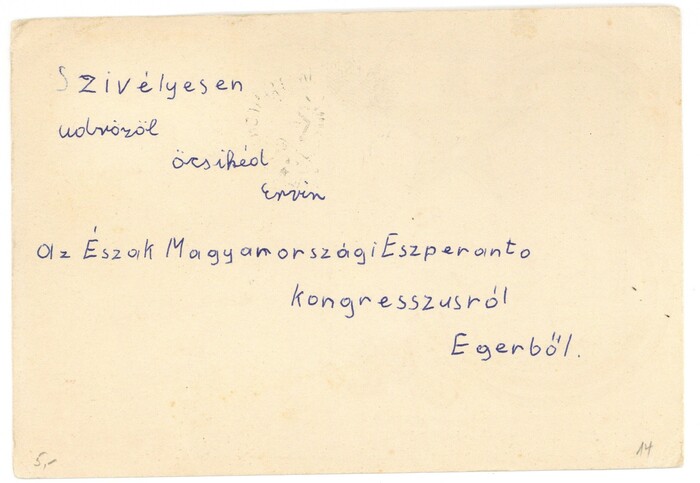 Szivélyesen
üdvözöl
öcsikéd
Ervin
az Észak Magyarországi Eszperanto
kongresszusról
Egerből.
5,-
14